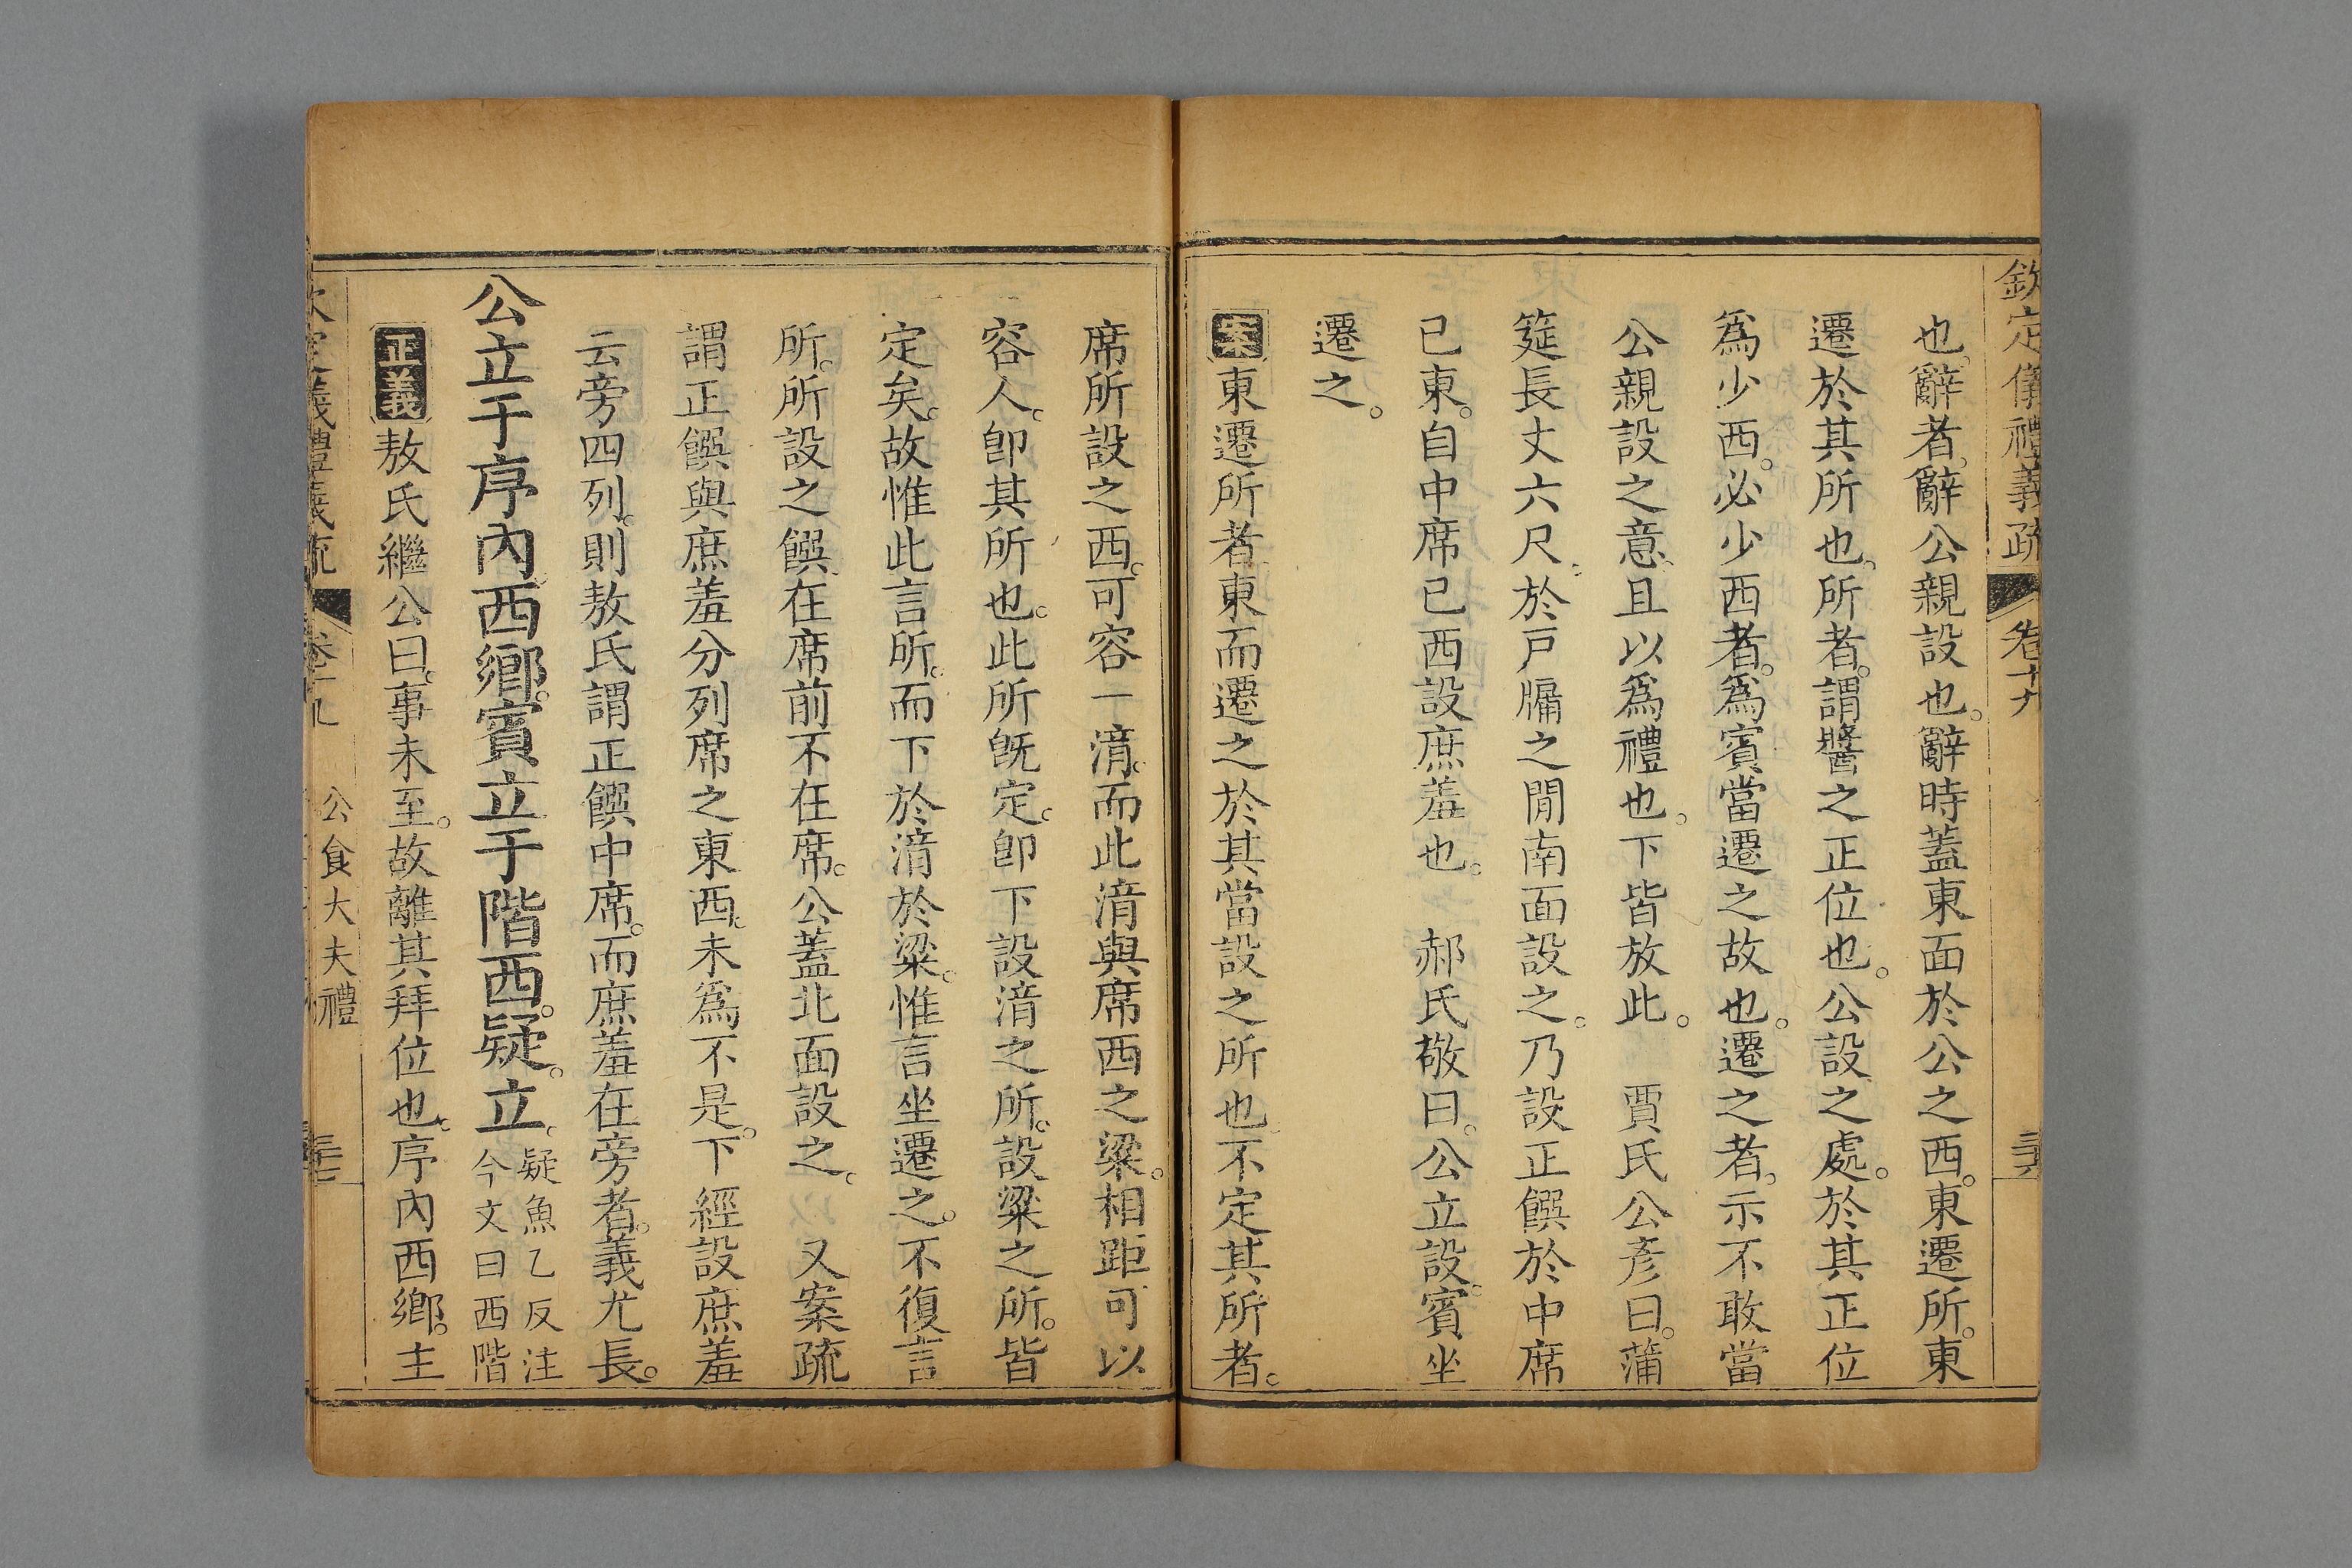 欽定儀禮義疏 卷十九
也。辭者。辭公親設也。辭時蓋東面於公之西。東遷所。東
遷於其所也。所者。謂醬之正位也。公設之處。於其正位
爲少西。必少西者。爲賓當遷之故也。遷之者。示不敢當
公親設之意。且以爲禮也。下皆放此。 賈氏公彥曰。蒲
筵長丈六尺。於戶牖之閒南面設之。乃設正饌於中席
已東。自中席已西設庶羞也。 郝氏敬曰。公立設。賓坐
遷之。
案東遷所者。東而遷之於其當設之所也。不定其所者。
席所設之西。可容一湆。而此湆與席西之粱。相距可以
容人。卽其所也。此所旣定。卽下設湆之所。設粱之所。皆
定矣。故惟此言所。而下於湆於粱。惟言坐遷之。不復言
所。所設之饌。在席前不在席。公蓋北面設之。 又案疏
謂正饌與庶羞分列席之東西。未爲不是。下經設庶羞
云旁四列。則敖氏謂正饌中席。而庶羞在旁者。義尤長。
公立于序內西鄉。賓立于階西。疑。立。疑魚乙反注
今文曰西階
正義敖氏繼公曰。事未至。故離其拜位也。序內西鄉。主
義禮義疏 卷十九 公食大夫禮